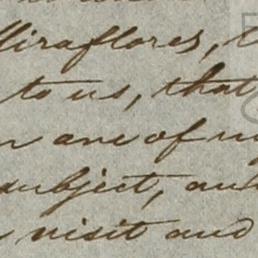 Miraflores,
to us, that
one of
subject,
visit and